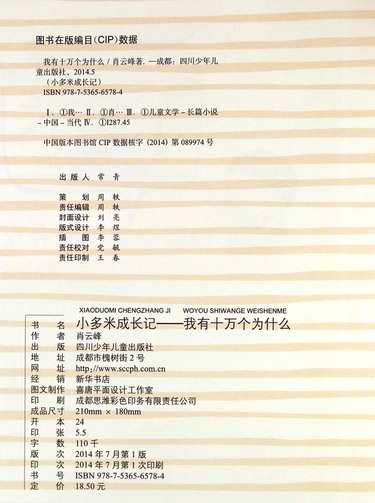 图书在版编目(CIP)数据
我有十万个为什么 / 肖云峰著. —成都：四川少年儿
童出版社，2014.5
（小多米成长记）
ISBN 978-7-5365-6578-4
Ⅰ. ①我… Ⅱ. ①肖… Ⅲ. ①儿童文学－长篇小说
－中国－当代 Ⅳ. ①I287.45
中国版本图书馆 CIP 数据核字 (2014) 第 089974 号
出 版 人 常 青
策 划 周 轶
责任编辑 周 轶
封面设计 刘 亮
版式设计 李 煜
插 图 李 蓉
责任校对 党 毓
责任印制 王 春
XIAODUOMI CHENGZHANG JI WOYOU SHIWANGE WEISHENME
书 名 小多米成长记——我有十万个为什么
作 者 肖云峰
出 版 四川少年儿童出版社
地 址 成都市槐树街 2 号
网 址 http://www.sccph.com.cn
经 销 新华书店
图文制作 喜唐平面设计工作室
印 刷 成都思潍彩色印务有限责任公司
成品尺寸 210mm × 180mm
开 本 24
印 张 5.5
字 数 110 千
版 次 2014 年 7 月第 1 版
印 次 2014 年 7 月第 1 次印刷
书 号 ISBN 978-7-5365-6578-4
定 价 18.50 元